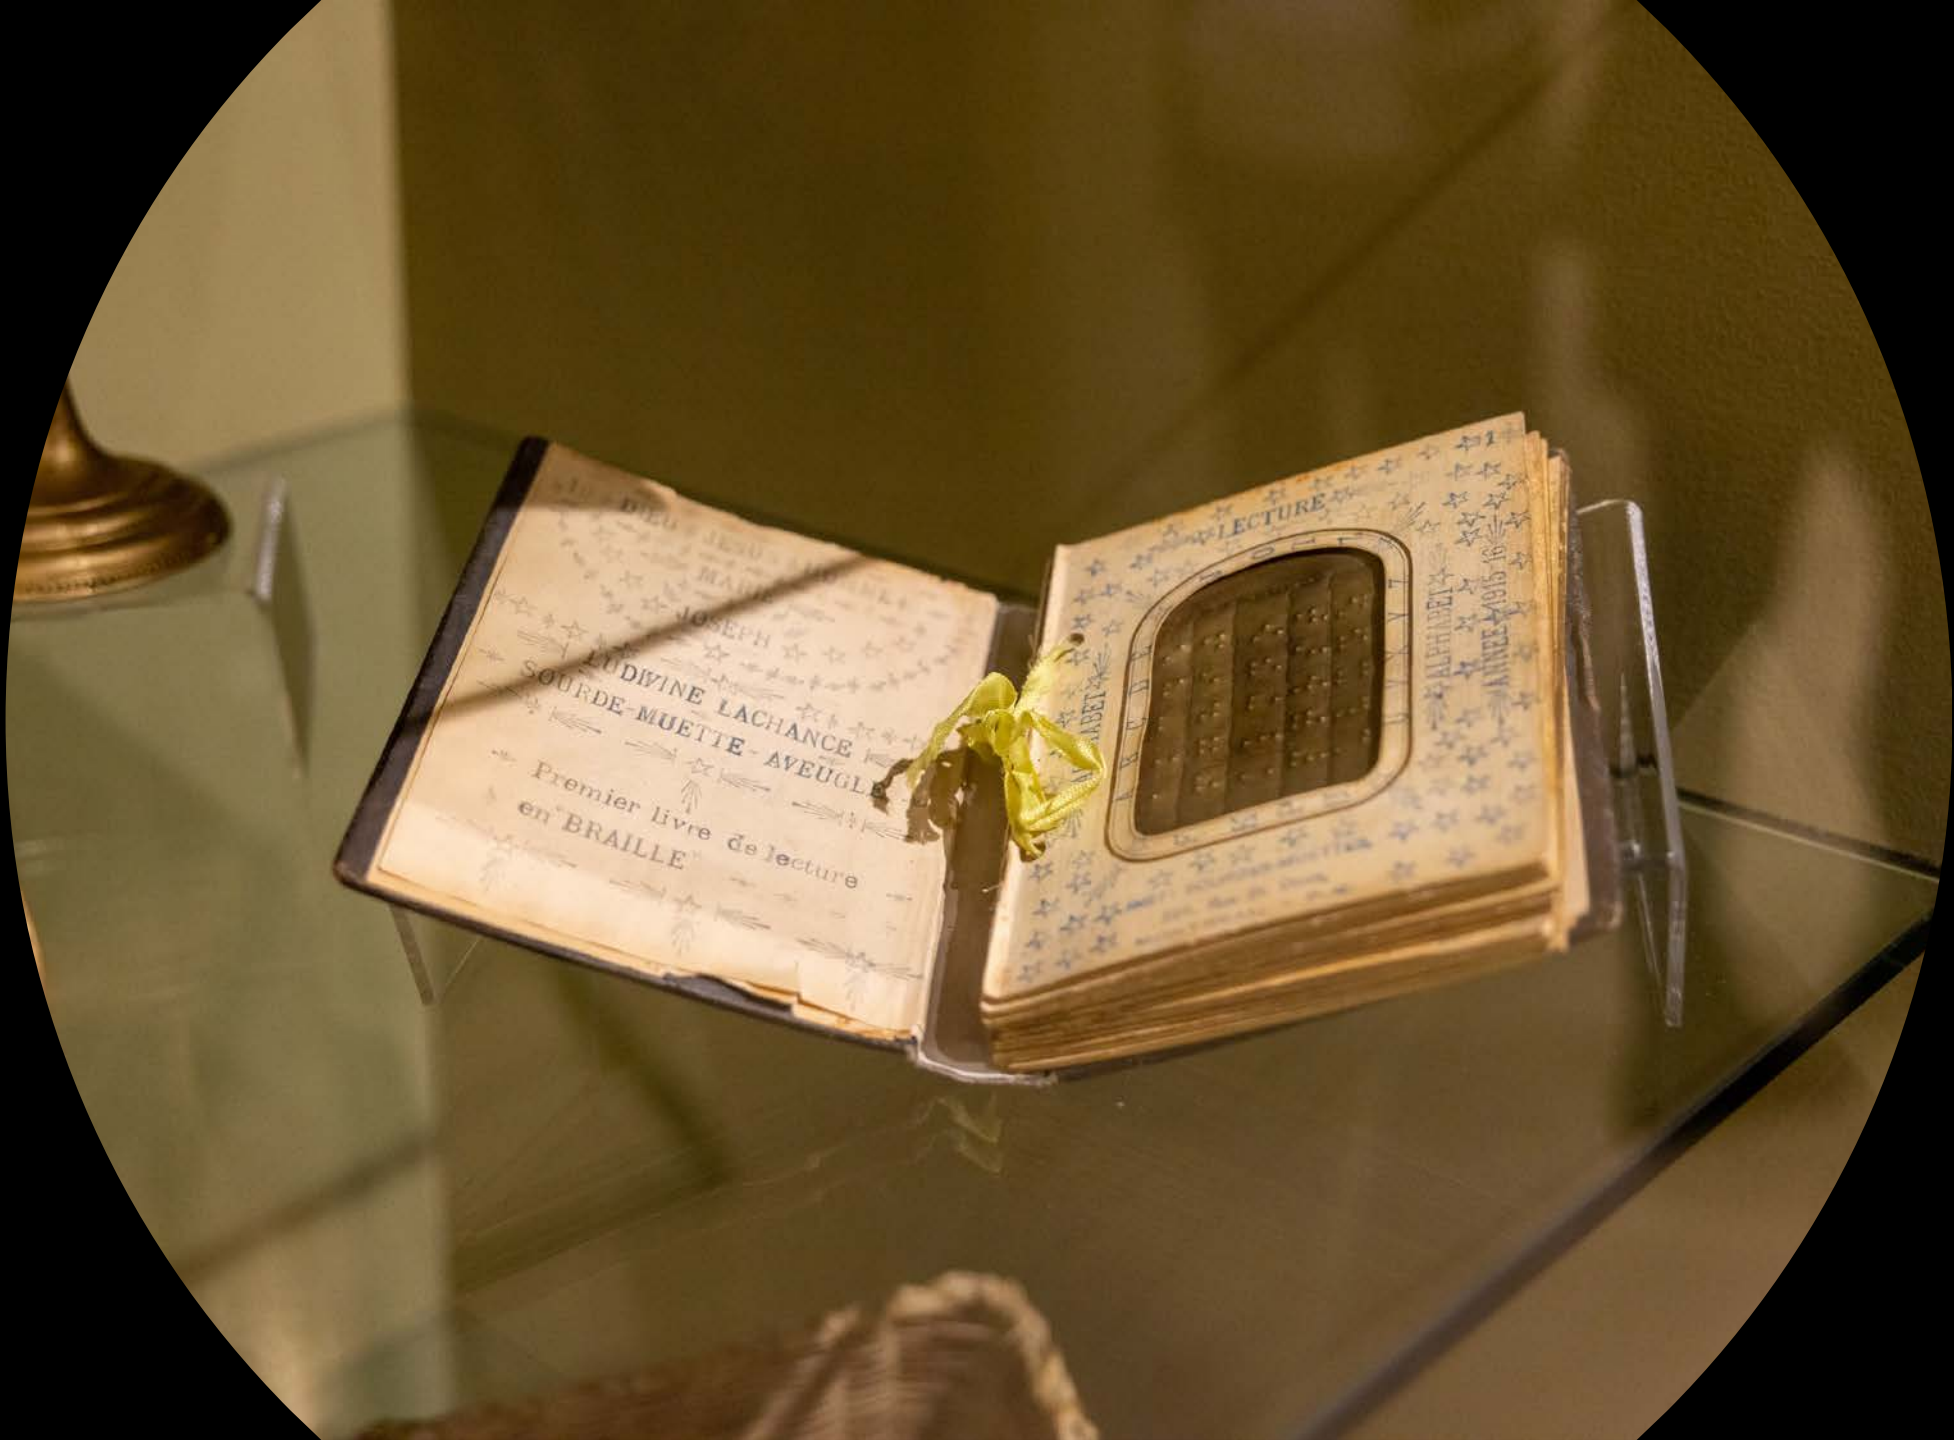 DIEU JESU
MARIE
JOSEPH
LUDIVINE LACHANCE
SOURDE-MUETTE-AVEUGLE
Premier livre de lecture
en "BRAILLE"
1
LECTURE
ALPHABET
A B C D E
U V X Y Z
ALPHABET
ANNEE 1915-16